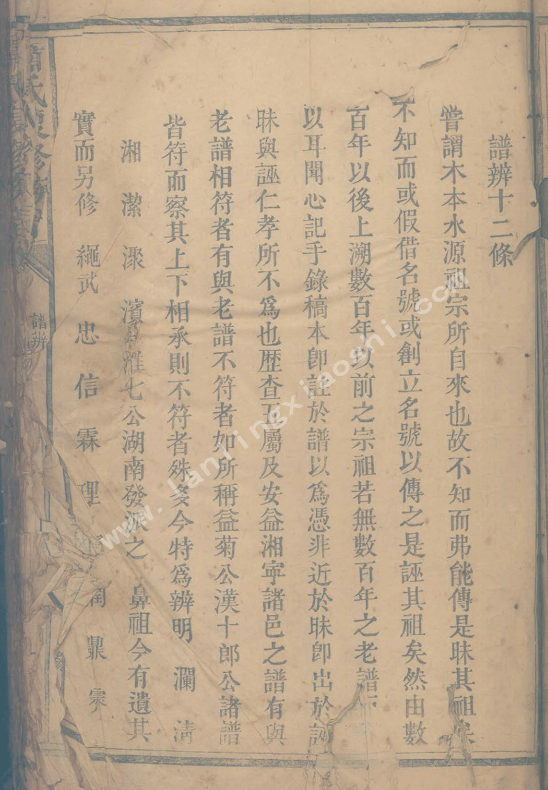 譜辨十二條
嘗謂木本水源祖宗所自來也故不知而弗能傳是昧其祖矣
不知而或假借名號或創立名號以傳之是誣其祖矣然由數
百年以後上溯數百年以前之宗祖若無數百年之老譜
以耳聞心記手錄稿本卽註於譜以爲憑非近於昧卽出於誣
昧與誣仁孝所不爲也歷查五屬及安益湘寧諸邑之譜有與
老譜相符者有與老譜不符者如所稱益菊公漢十郎公諸譜
皆符而察其上下相承則不符者殊多今特爲辨明 瀾 清
湘 潔 濴 濱 淮七公湖南發源之 鼻祖今有遺其
實而另修 繩武 忠 信 霖 理 潤 鼎 霁
氏
修
譜辨
www.jiapingxiaoshi.com